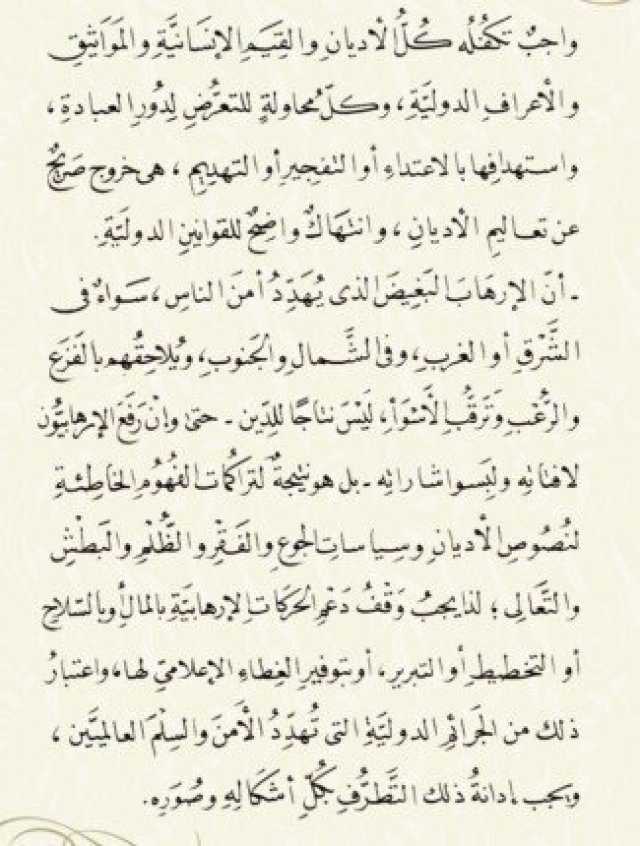 واجبٌ تَكفُلُه كُلُّ الأديانِ والقِيَمِ الإنسَانيَّةِ والمَوَاثيقِ
والأعرافِ الدوليَّةِ، وكلُّ محاولةٍ للتعرُّضِ لِدُورِ العبادةِ،
واستهدافِها بالاعتداءِ أو التفجيرِ أو التهديمِ، هى خروج صَريحٌ
عن تعاليمِ الأديانِ، وانتهَاكٌ واضِحٌ للقوانينِ الدوليَّةِ.
- أنَّ الإرهَابَ البَغِيضَ الذى يُهَدِّدُ أمنَ الناسِ، سَوَاءٌ فى
الشَّرْقِ أو الغربِ، وفى الشَّمالِ والجَنوبِ، ويُلاحِقُهم بالفَزَعِ
والرُّعْبِ وَتَرَقُّبِ الأَسْوَأِ، لَيْسَ نتاجًا للدِّين - حتى وإنْ رَفَعَ الإرهابيُّون
لافتاتِه ولبَسوا شاراتِه - بل هو نتيجةٌ لتراكُمات الفُهُومِ الخاطِئةِ
لنُصُوصِ الأديانِ وسِياساتِ الجوعِ والفَقْرِ والظُّلْمِ والبَطْشِ
والتَّعَالِى؛ لذا يجبُ وَقْفُ دَعْمِ الحَرَكَاتِ الإرهابيَّةِ بالمالِ أو بالسِّلاحِ
أو التخطيطِ أو التبريرِ، أو بتوفيرِ الغِطاءِ الإعلامىِّ لها، واعتبارُ
ذلك من الجَرائِمِ الدوليَّةِ التى تُهدِّدُ الأَمنَ والسِلْمَ العالميَّين،
ويجب إدانةُ ذلك التَّطرُّفِ بكُلِّ أشكَالِهِ وصُوَرِهِ.